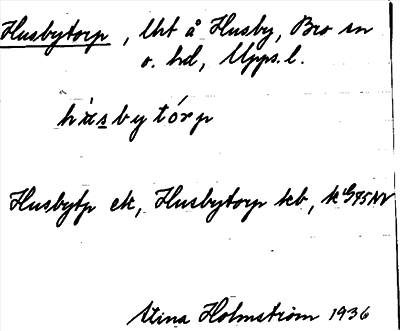 Husbytorp, Uht å Husby, Bro sn
o. hd, Upps. l.
hùsbytórp
Husbytp ek, Husbytorp kb,
Stina Holmström 1936